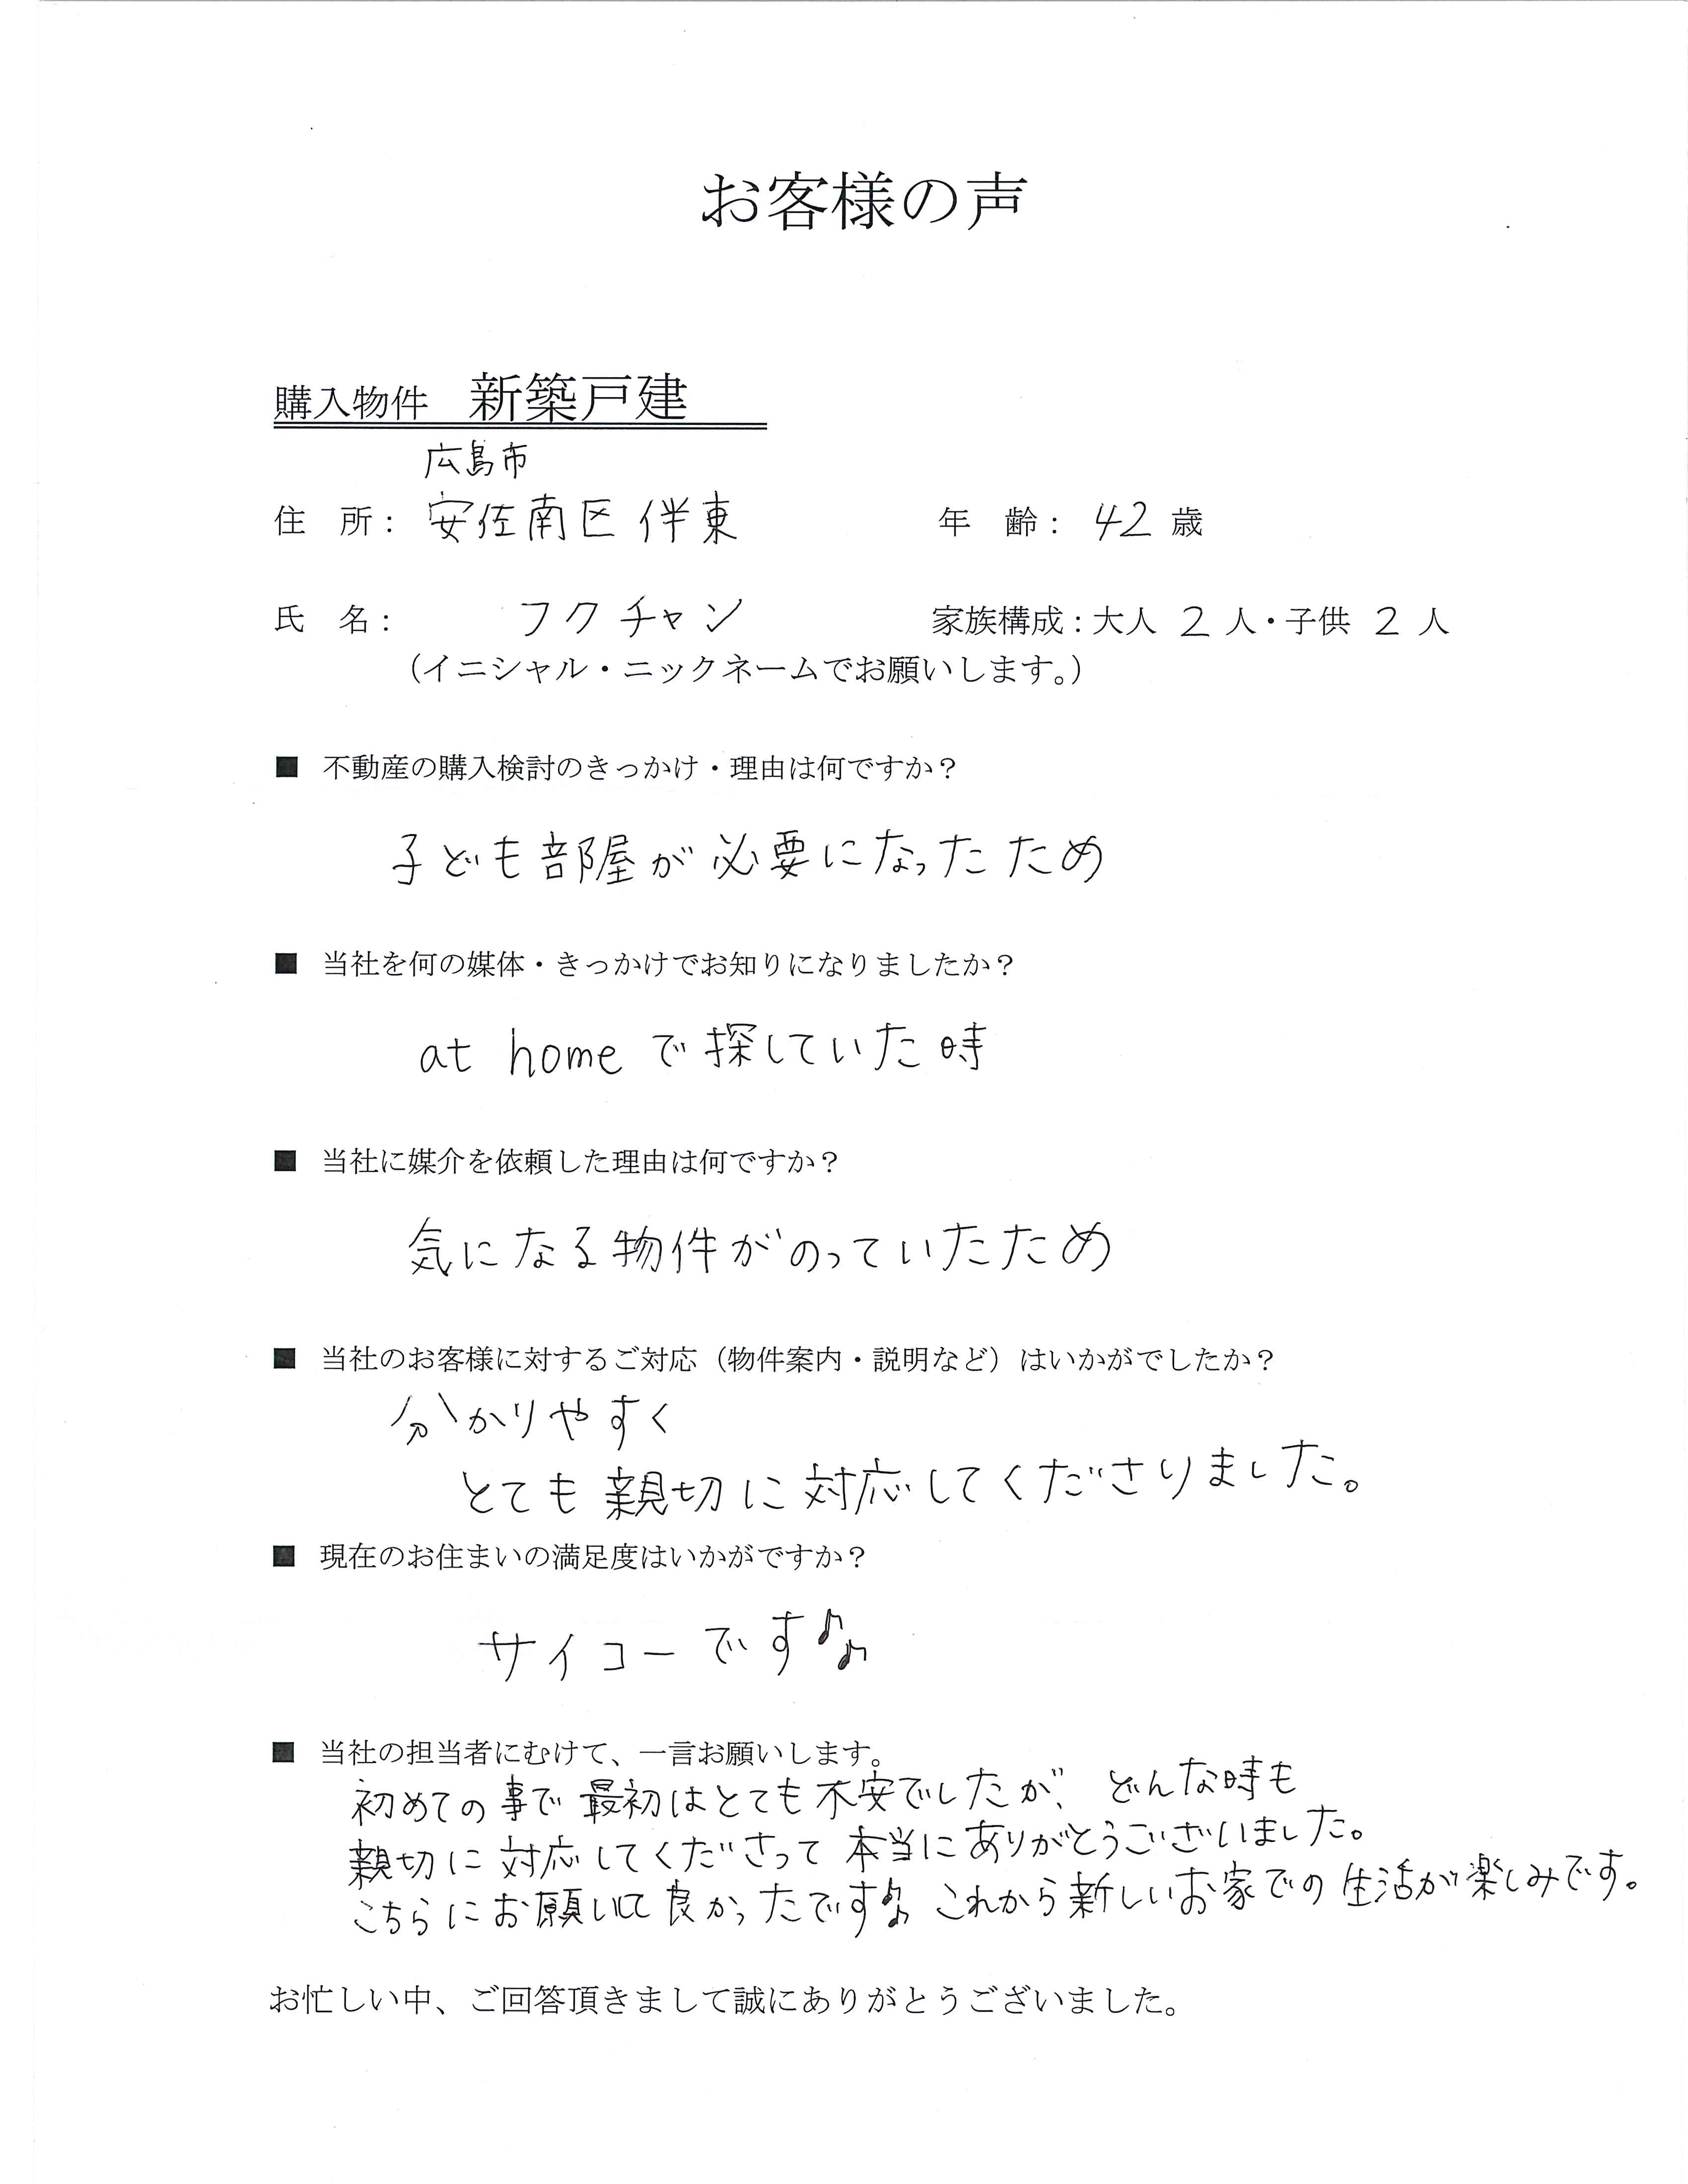 お客様の声
購入物件　新築戸建
広島市
住　所： 安佐南区伴東　年　齢： 42 歳
氏　名： フクチャン　家族構成：大人 2 人・子供 2 人
（イニシャル・ニックネームでお願いします。）
■ 不動産の購入検討のきっかけ・理由は何ですか？
子ども部屋が必要になったため
■ 当社を何の媒体・きっかけでお知りになりましたか？
at home で探していた時
■ 当社に媒介を依頼した理由は何ですか？
気になる物件がのっていたため
■ 当社のお客様に対するご対応（物件案内・説明など）はいかがでしたか？
分かりやすく
とても親切に対応してくださりました。
■ 現在のお住まいの満足度はいかがですか？
サイコーです♪♪
■ 当社の担当者にむけて、一言お願いします。
初めての事で最初はとても不安でしたが、どんな時も
親切に対応してくださって本当にありがとうございました。
こちらにお願いして良かったです♪♪ これから新しいお家での生活が楽しみです。
お忙しい中、ご回答頂きまして誠にありがとうございました。